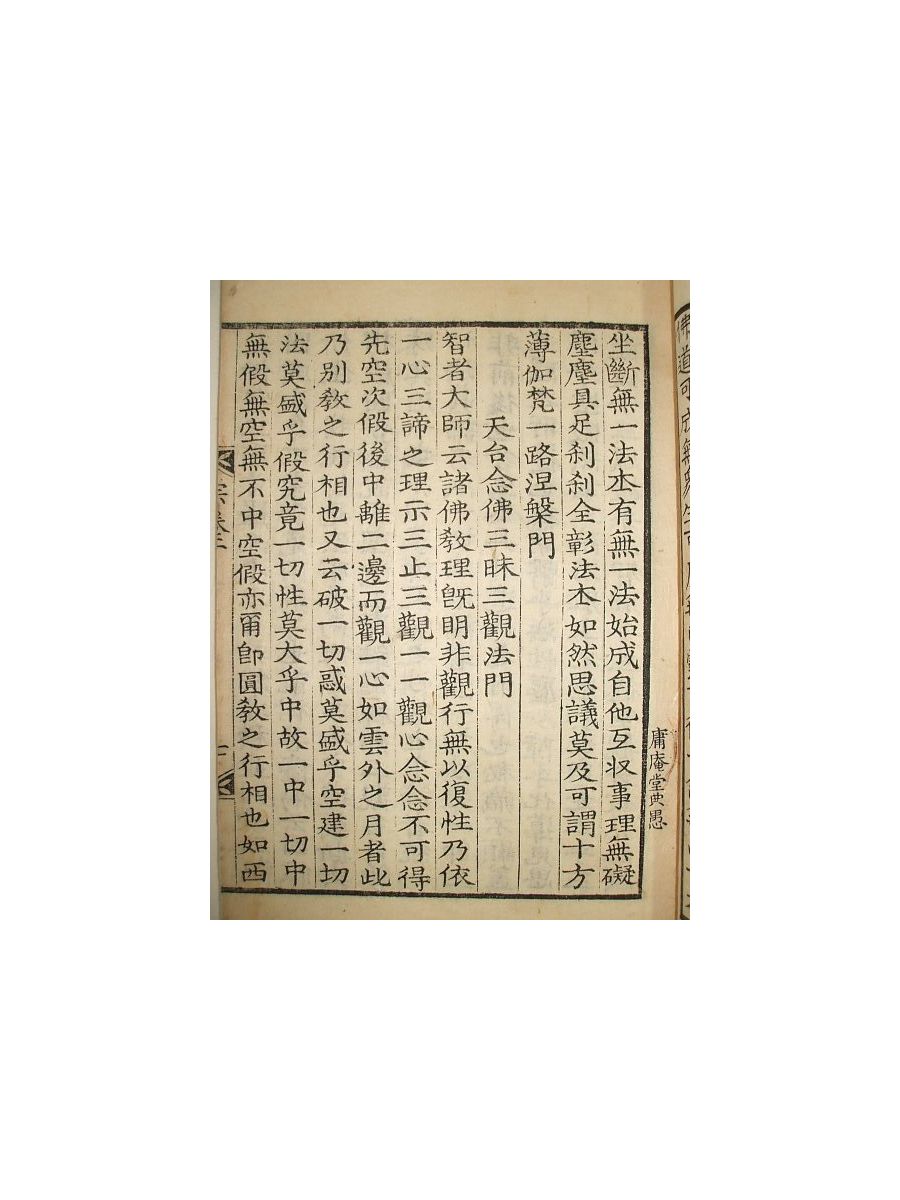 坐斷無一法本有無一法始成自他互收事理無礙
塵塵具足刹刹全彰法本如然思議莫及可謂十方
薄伽梵一路涅槃門
天台念佛三昧三觀法門
智者大師云諸佛教理旣明非觀行無以復性乃依
一心三諦之理示三止三觀一一觀心念念不可得
先空次假後中離二邊而觀一心如雲外之月者此
乃別教之行相也又云破一切惑莫盛乎空建一切
法莫盛乎假究竟一切性莫大乎中故一中一切中
無假無空無不中空假亦爾卽圓教之行相也如西